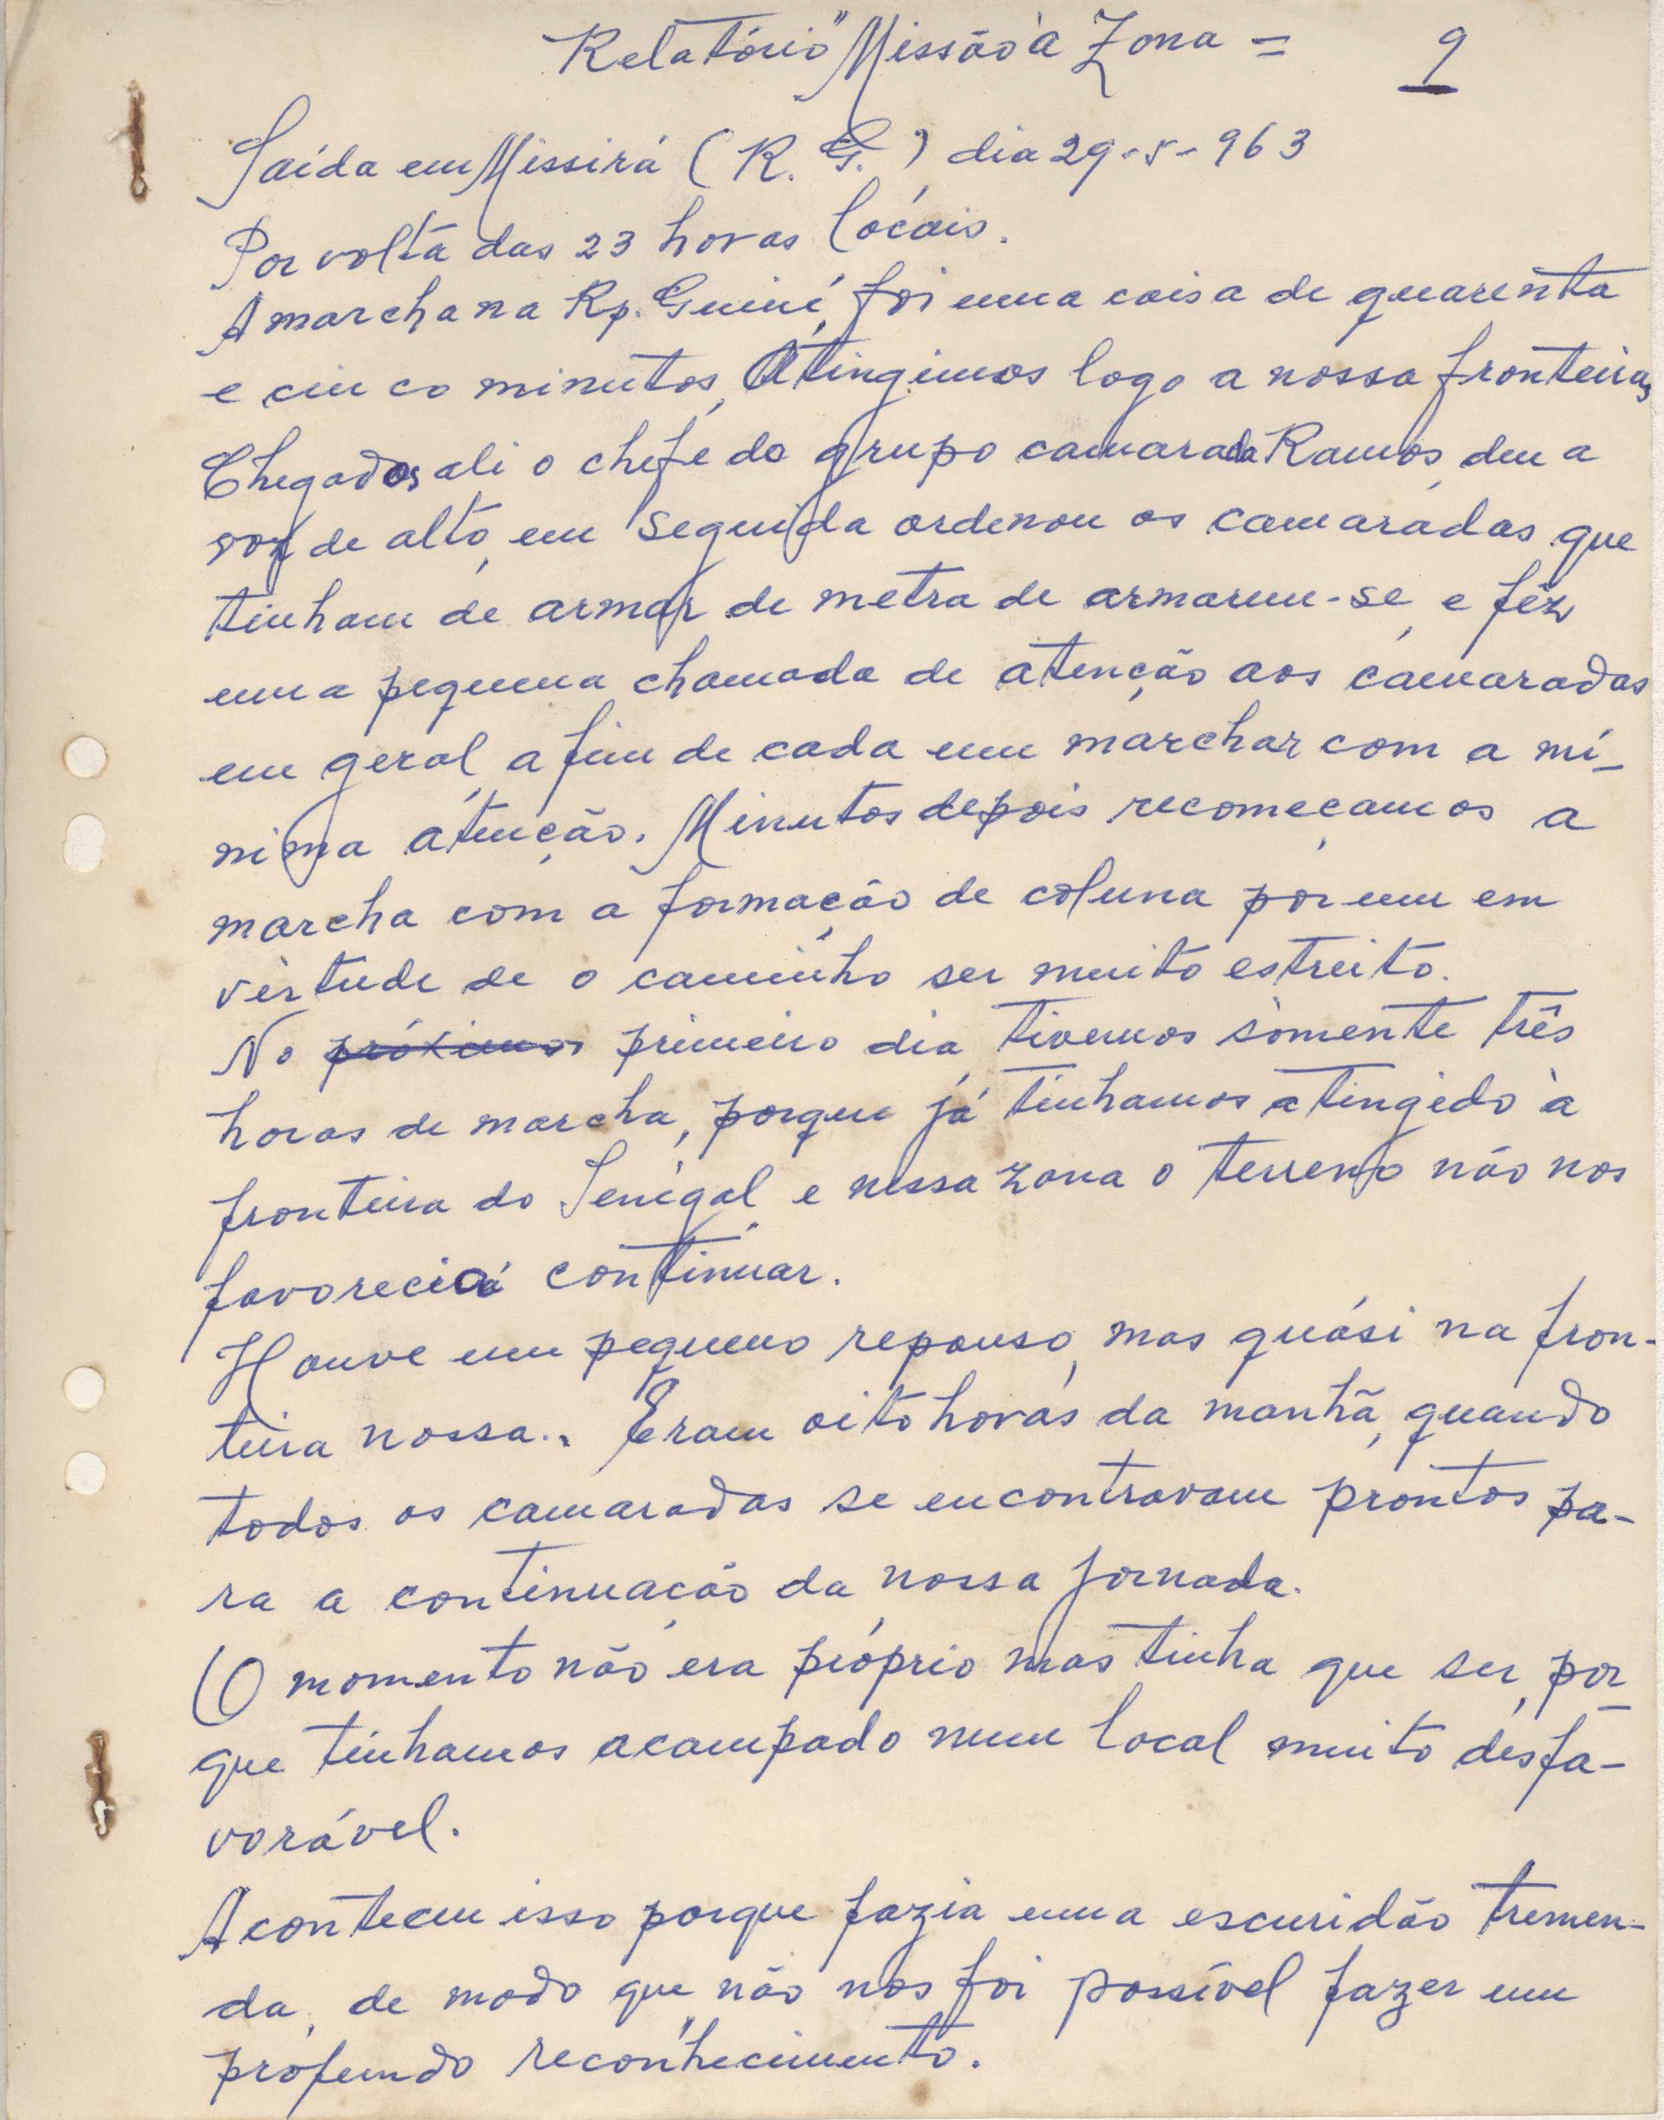 Relatório "Missão à Zona = 9
Saída em Missirá (R. G.) dia 29-5-963
Por volta das 23 horas locais.
A marcha na Rp. Guiné, foi uma coisa de quarenta
e cinco minutos, Atingimos logo a nossa fronteira,
Chegados ali o chefe do grupo camarada Ramos, deu a
voz de alto, em seguida ordenou os camaradas que
tinham de armar de metra de armarem-se, e fêz
uma pequena chamada de atenção aos camaradas
em geral, a fim de cada um marchar com a mí-
nima atenção. Minutos depois recomeçamos a
marcha com a formação de coluna por um em
virtude de o caminho ser muito estreito.
No próximo primeiro dia, tivemos sòmente três
horas de marcha, porque já tínhamos atingido à
fronteira do Senegal e nessa zona o terreno não nos
favorecia continuar.
Houve um pequeno repouso, mas quási na fron-
teira nossa.. Eram oito horas da manhã, quando
todos os camaradas se encontravam prontos pa-
ra a continuação da nossa jornada.
O momento não era próprio mas tinha que ser, por-
que tínhamos acampado num local muito desfa-
vorável.
Aconteceu isso porque fazia uma escuridão tremen-
da, de modo que não nos foi possível fazer um
profundo reconhecimento.